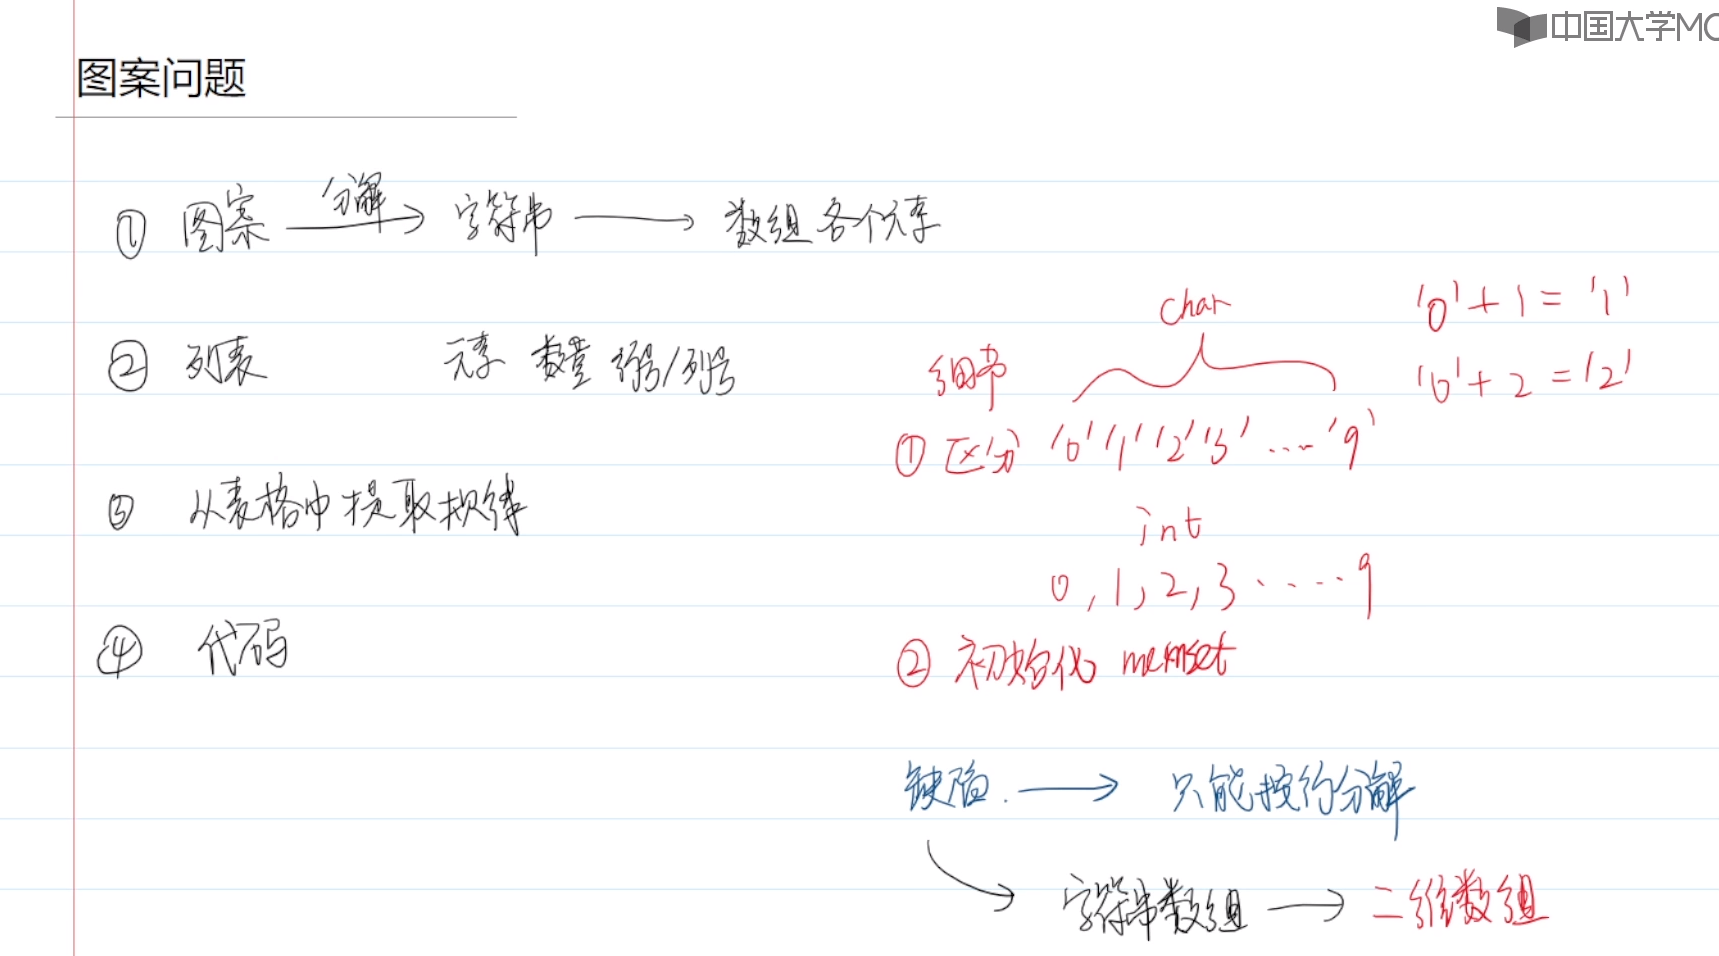 中国大学MO
图案问题
① 图案 分解 → 字符串 → 数组各个元素
② 列表 元素 数量 行号/列号
③ 从表格中提取规律
④ 代码
char
'0'+1='1'
'0'+2='2'
细节
① 区分 '0' '1' '2' '3' ... '9'
int
0,1,2,3.....9
② 初始化 memset
缺陷. → 只能按行分解
字符串数组 → 二维数组